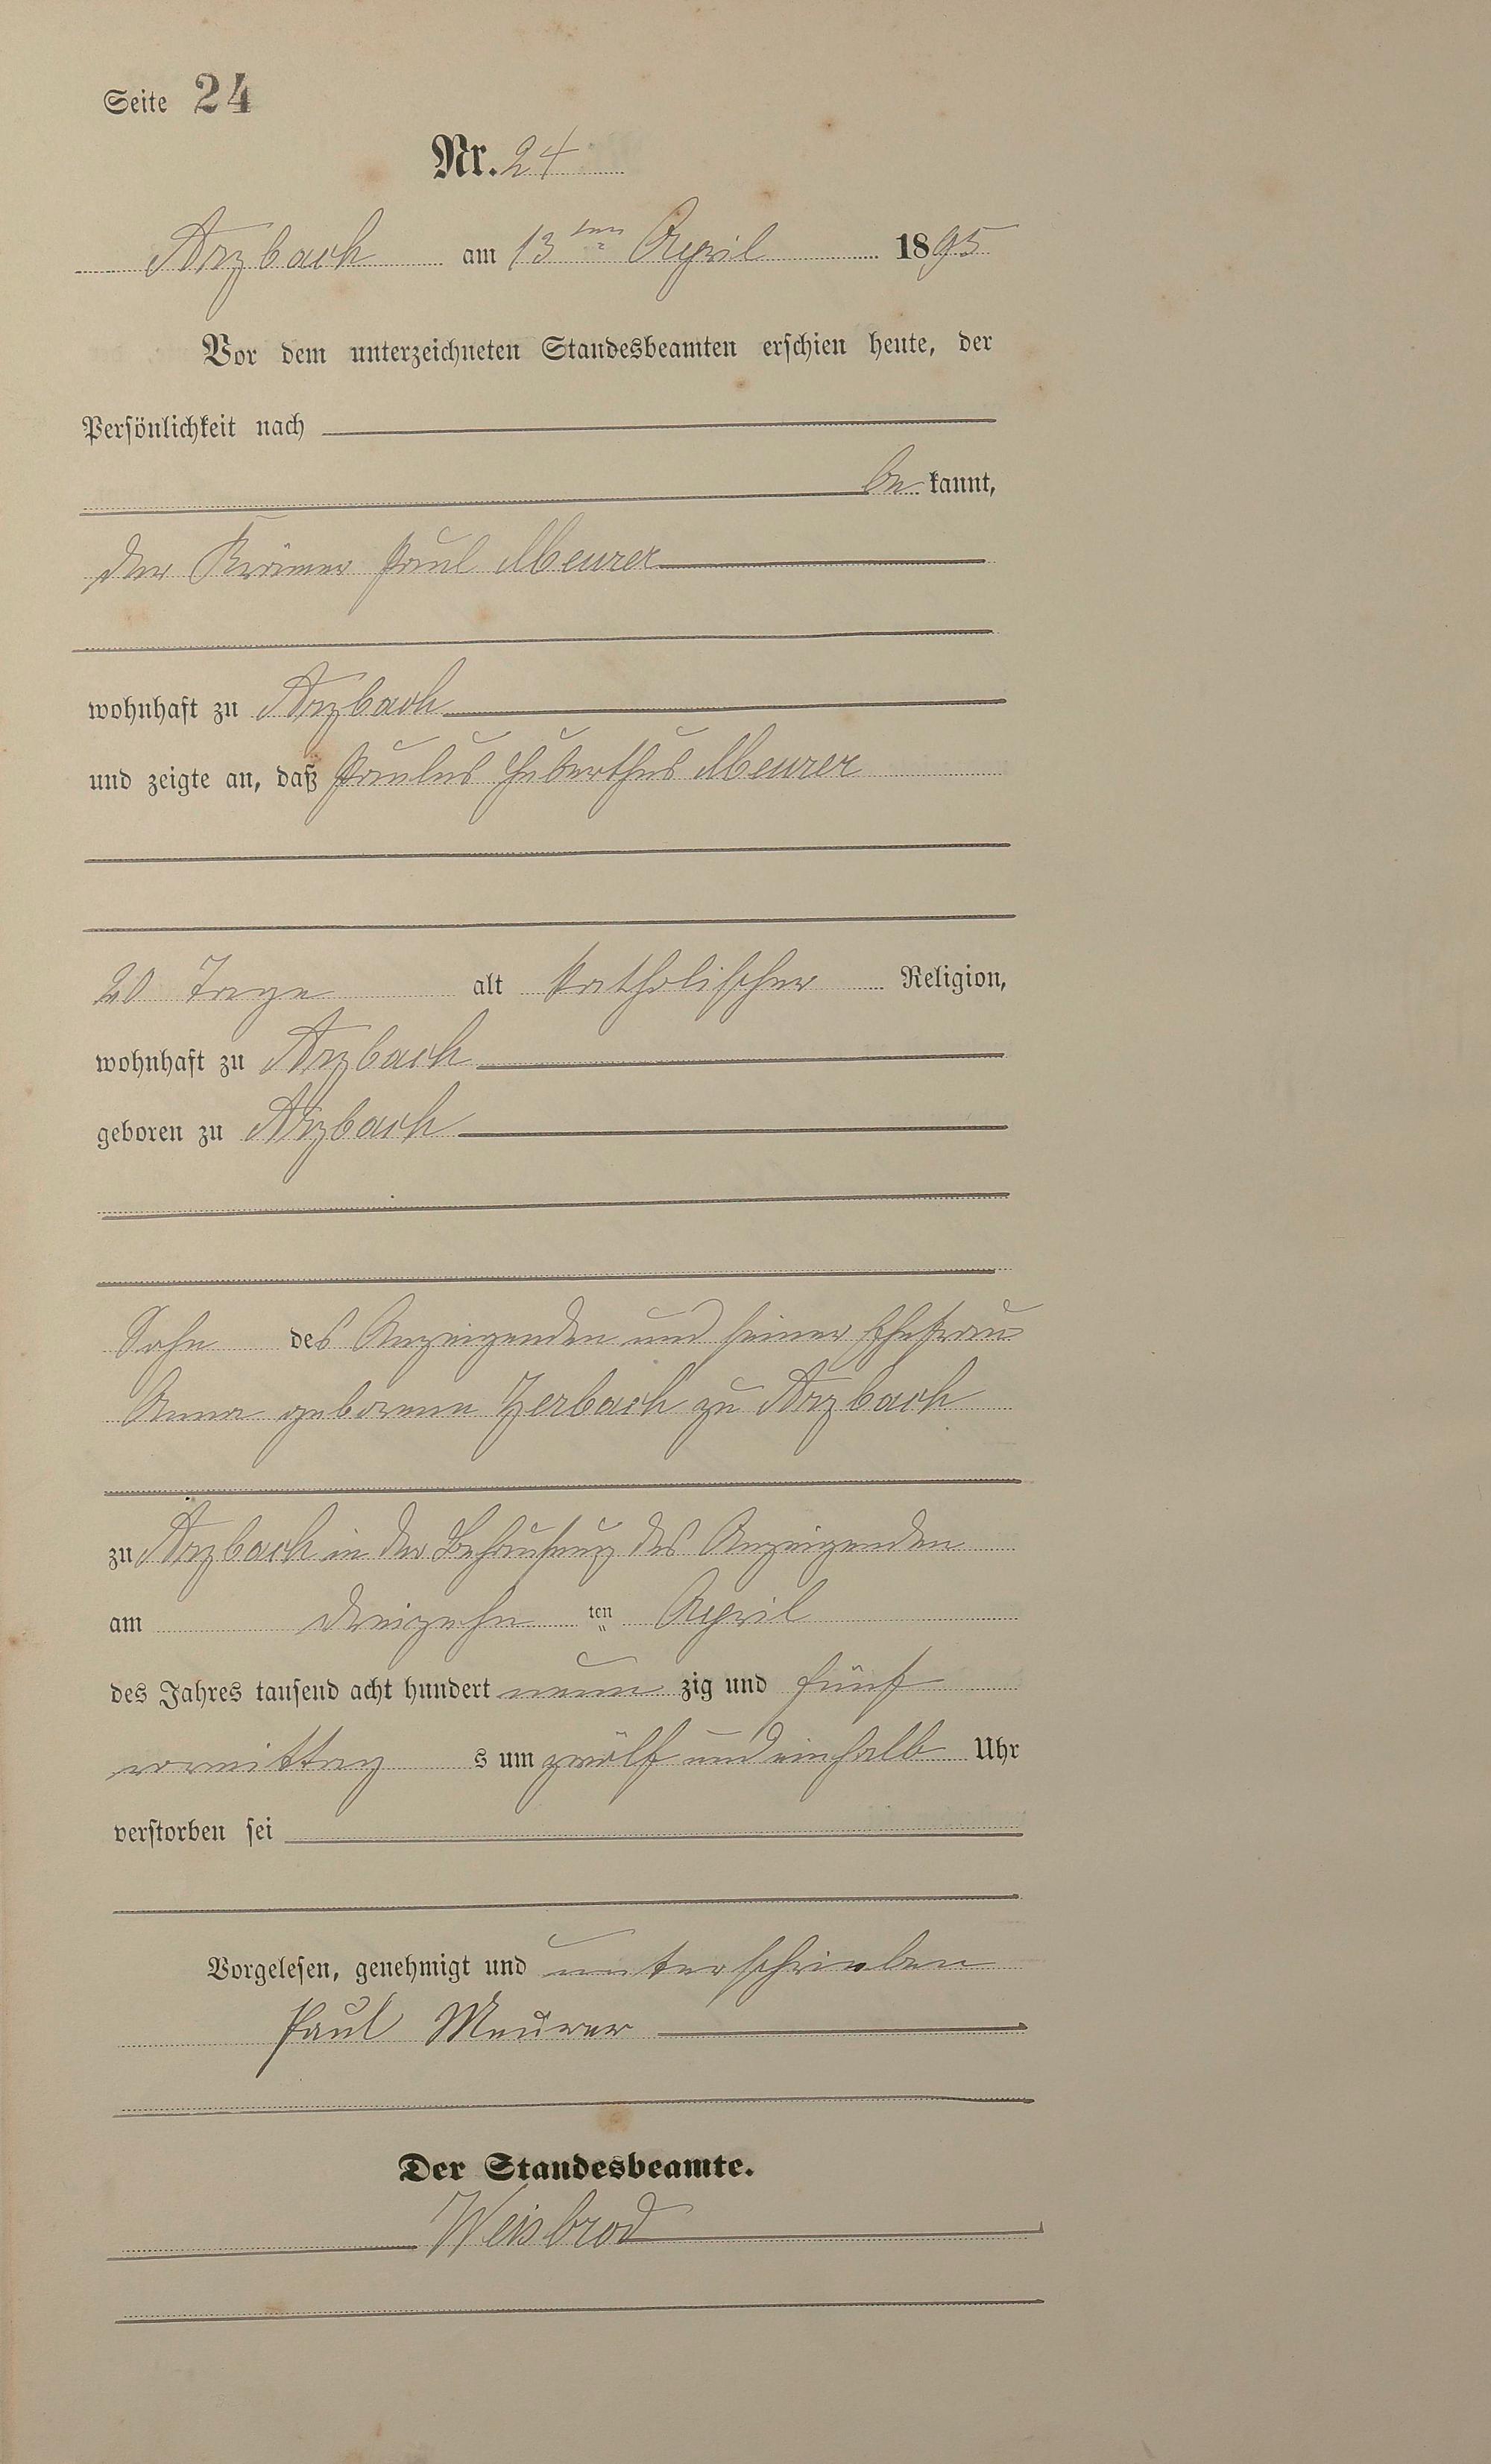 Seite 24
Nr. 24
Arzbach am 13ten April 1895
Vor dem unterzeichneten Standesbeamten erschien heute, der
Persönlichkeit nach
be kannt,
der Krämer Paul Meurer
wohnhaft zu Arzbach
und zeigte an, daß Paulus Huberthus Meurer
20 Tage alt katholischer Religion,
wohnhaft zu Arzbach
geboren zu Arzbach
Sohn des Anzeigenden und seiner Ehefrau
Anna geborene Zerbach zu Arzbach
zu Arzbach in der Behausung des Anzeigenden
am dreizehn ten April
des Jahres tausend acht hundert neun zig und fünf
vormittag s um zwölf und einhalb Uhr
verstorben sei
Vorgelesen, genehmigt und unterschrieben
Paul Meurer
Der Standesbeamte.
Weisbrod